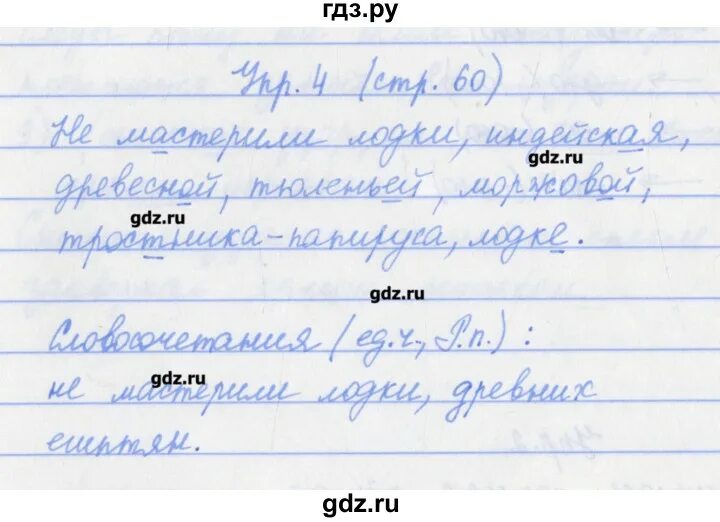 гдз.ру
Упр. 4 (стр. 60)
Не мастерили лодки, индейская,
gdz.ru
древесной, тюленьей, моржовой,
gdz.ru
тростника-папируса, лодке.
gdz.ru
Словосочетания (ед.ч., Р.п.):
gdz.ru
не мастерили лодки, древних
египтян.
gdz.ru